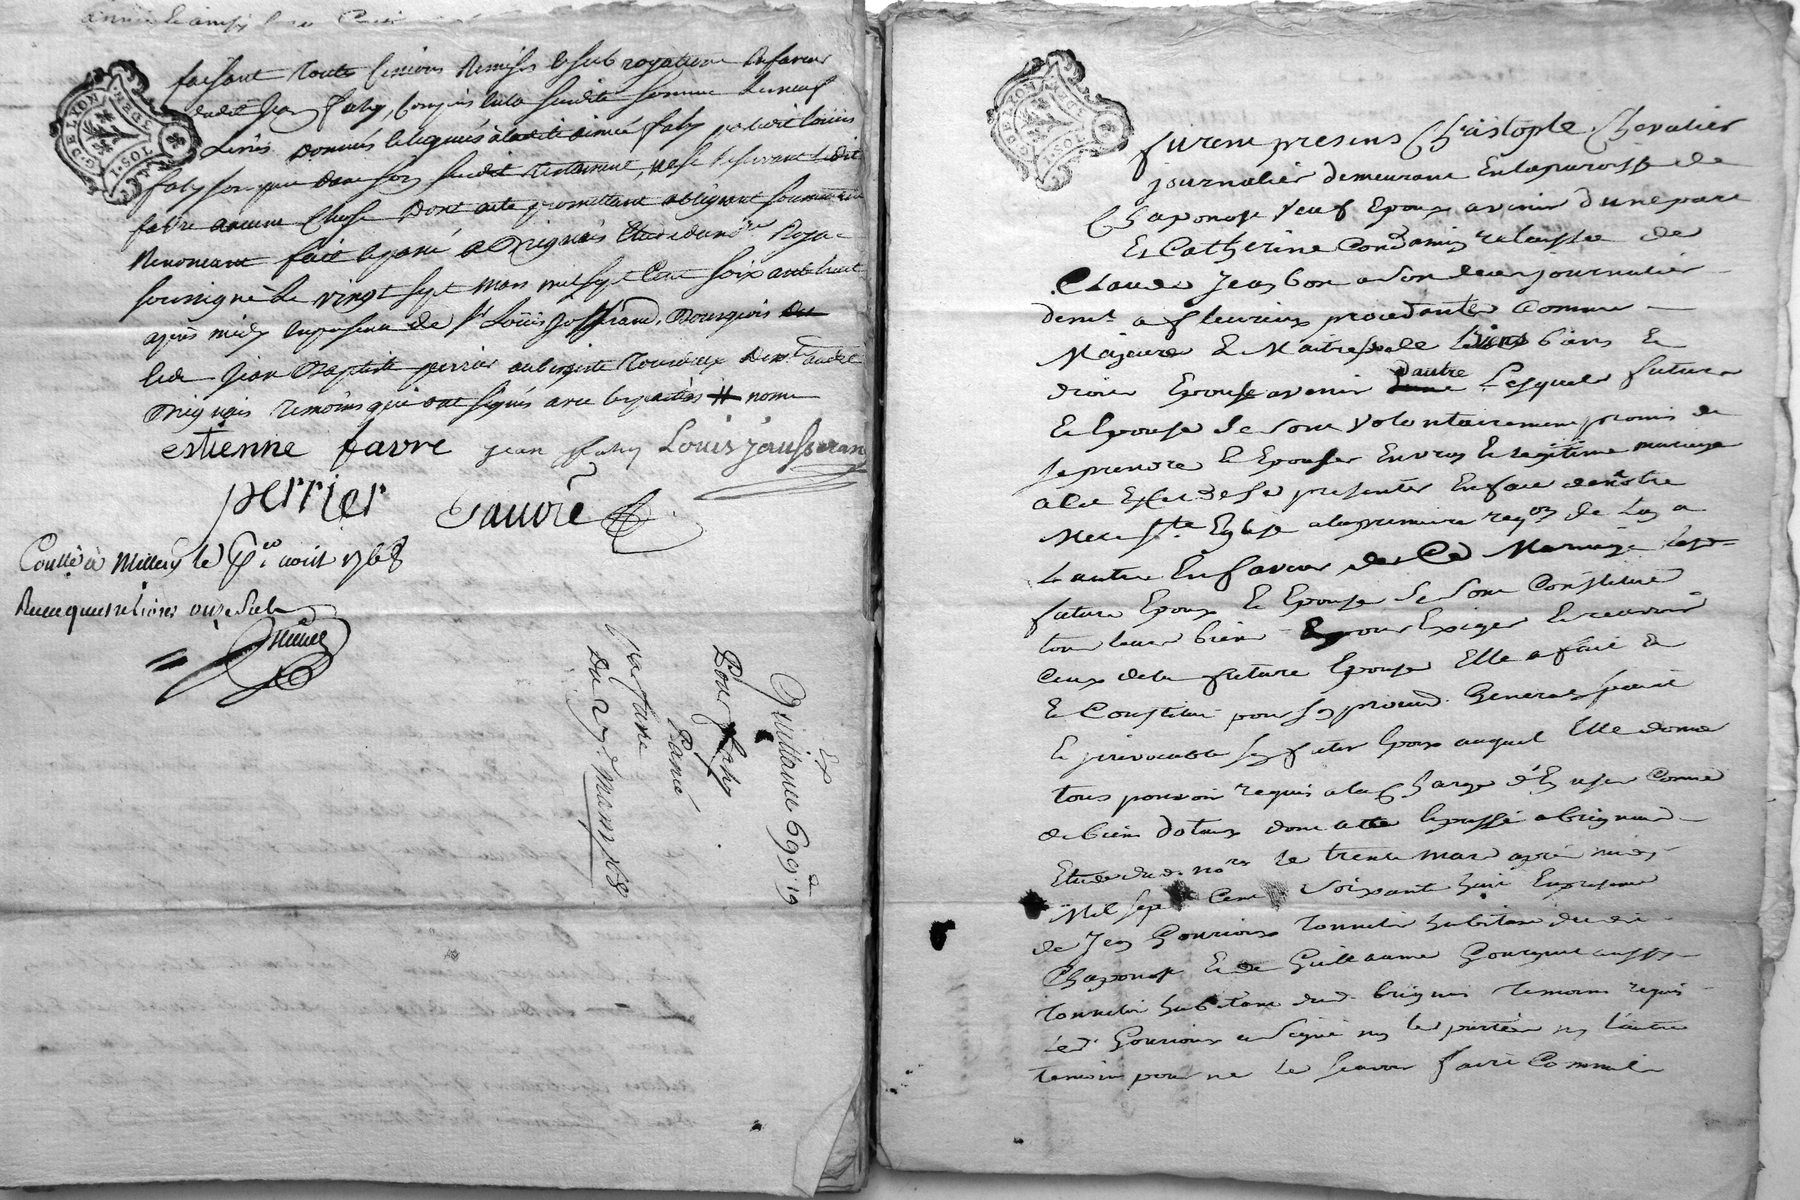 faisant toutes cessions remises et subrogations en faveur
dudit Jean faby, compris la susdite somme de neuf
Livres donnés et legués à ladite aimée faby par ledit Louis
faby son pere dans son susdit testament, ne se reservant ledit
favre aucune chose dont acte promettant obligeant soumettant
Renonceant fait et passé a Brignais Etude du no.re Royal
soussigné le vingt sept mars mil sept Cent soixante huit
apres midy en presence de sr Louis Josserand, Bourgeois du
lieu Jean Baptiste perrier aubergiste demt audit
Brignais temoins qui ont signés avec les parties # nome
estienne favre jean faby Louis jausseran
perrier Sauvré
Contlé à Millery le août 1768
Receu quatre Livres onze sols
G. DE LYON
1. SOL
Quittance 699: 19
Pour faby
Passé
Par favre
Du 27e mars 1768
furent presens Christople Chevalier
journalier demeurant En la paroisse de
Chaponost veuf Epoux avenir d'une part
Et Catherine Condamin relaissée de
Claude Jeanbon a son deces journalier
demt. a fleurieux procedante Comme
Majeure Et Maitresse de biens Et
droits Epouse avenir d'autre Lesquels futurs
Et Epouse Se sont volontairement promis de
se prendre Et Epouser En vray Et legitime mariage
a Cet Effet de Se presenter En face de notre
Mere Ste. Eglise a la premiere reqon de Lun a
Lautre En faveur de Ce Mariage Les
futurs Epoux Et Epouse Se sont Constitué
tous leurs biens Et pour Exiger Et recevoir
Ceux de la future Epouse Elle a fait Et
Et Constitué pour Son procur. General special
Et jrrevocable Son futur Epoux auquel Elle donne
tous pouvoir requis a la Charge d'En user Comme
de biens dotaux dont acte Et passé a brignais
Etude dud. nore le trente mars après midy
Mil sept Cent Soixante huit En presence
de Jean Gourioux tonnelier habitant dudit
Chaponost Et de Guillaume aussy
tonnelier habitant dud. brignais temoins requis
led. Gourioux a signé non les parties ny l'autre
temoin pour ne le Scavoir faire